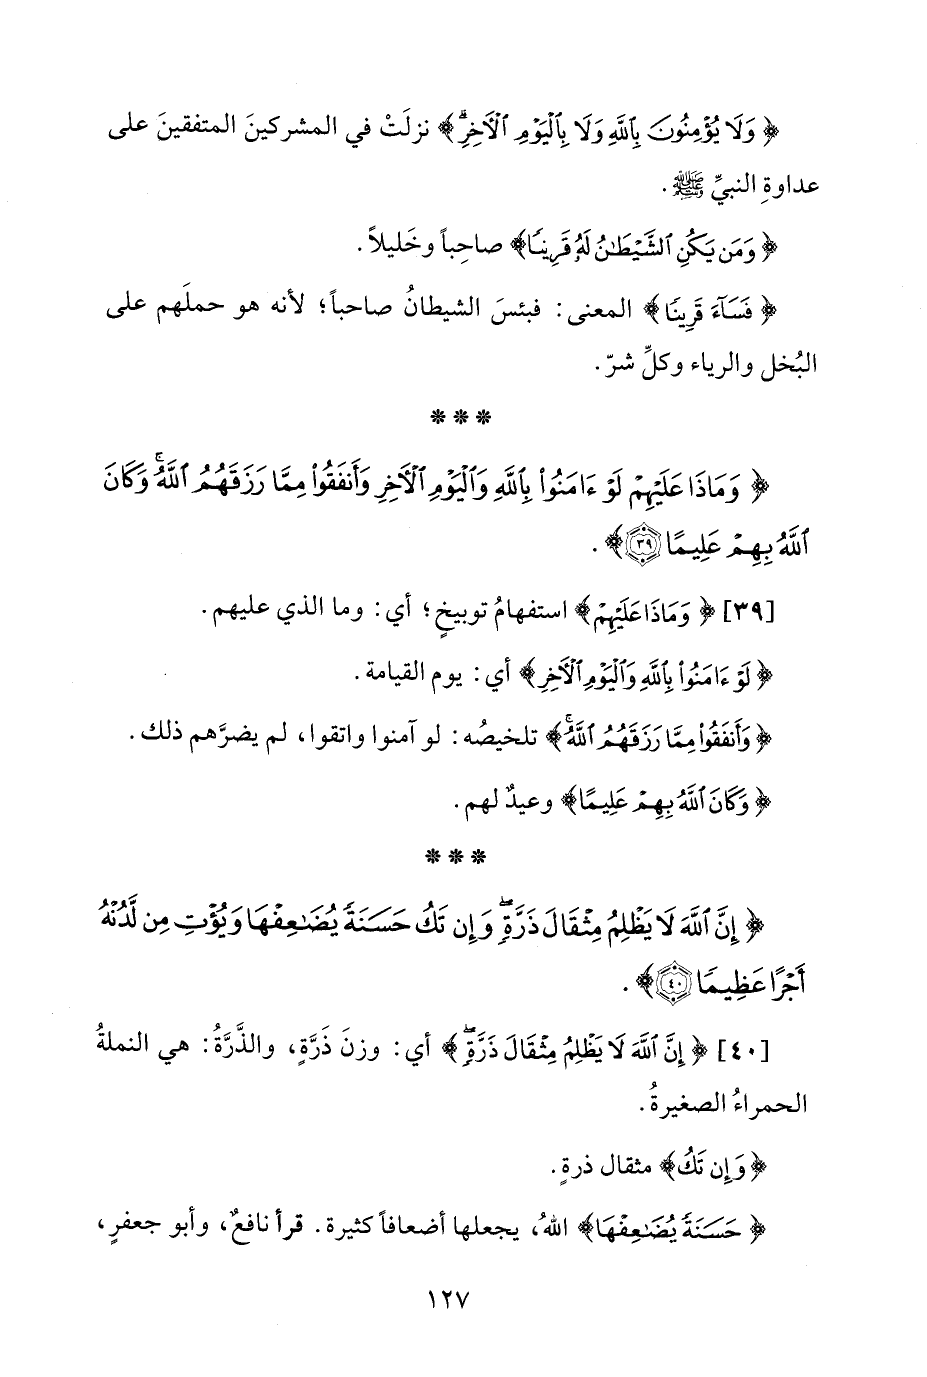 ﴿ وَلَا يُؤْمِنُونَ بِٱللَّهِ وَلَا بِٱلْيَوْمِ ٱلْآخِرِۗ ﴾ نزلَتْ في المشركينَ المتفقينَ على
عداوةِ النبيِّ ﷺ .
﴿ وَمَن يَكُنِ ٱلشَّيْطَٰنُ لَهُۥ قَرِينًا﴾ صاحِباً وخَليلاً .
﴿ فَسَآءَ قَرِينًا ﴾ المعنى : فبئسَ الشيطانُ صاحباً؛ لأنه هو حملَهم على
البُخل والرياء وكلِّ شرّ .
* * *
﴿ وَمَاذَا عَلَيْهِمْ لَوْ ءَامَنُوا۟ بِٱللَّهِ وَٱلْيَوْمِ ٱلْآخِرِ وَأَنفَقُوا۟ مِمَّا رَزَقَهُمُ ٱللَّهُۚ وَكَانَ
ٱللَّهُ بِهِمْ عَلِيمًا ٣٩﴾ .
[٣٩] ﴿ وَمَاذَا عَلَيْهِمْ ﴾ استفهامُ توبيخٍ؛ أي : وما الذي عليهم .
﴿ لَوْ ءَامَنُوا۟ بِٱللَّهِ وَٱلْيَوْمِ ٱلْآخِرِ ﴾ أي : يوم القيامة .
﴿ وَأَنفَقُوا۟ مِمَّا رَزَقَهُمُ ٱللَّهُۚ ﴾ تلخيصُه : لو آمنوا واتقوا، لم يضرَّهم ذلك .
﴿ وَكَانَ ٱللَّهُ بِهِمْ عَلِيمًا ﴾ وعيدٌ لهم .
* * *
﴿ إِنَّ ٱللَّهَ لَا يَظْلِمُ مِثْقَالَ ذَرَّةٍۖ وَإِن تَكُ حَسَنَةً يُضَٰعِفْهَا وَيُؤْتِ مِن لَّدُنْهُ
أَجْرًا عَظِيمًا ٤٠﴾ .
[٤٠] ﴿ إِنَّ ٱللَّهَ لَا يَظْلِمُ مِثْقَالَ ذَرَّةٍۖ ﴾ أي : وزنَ ذَرَّةٍ، والذَّرَّةُ : هي النملةُ
الحمراءُ الصغيرةُ .
﴿ وَإِن تَكُ ﴾ مثقال ذرةٍ .
﴿ حَسَنَةً يُضَٰعِفْهَا ﴾ اللهُ، يجعلها أضعافاً كثيرة . قرأ نافعٌ، وأبو جعفرٍ،
١٢٧